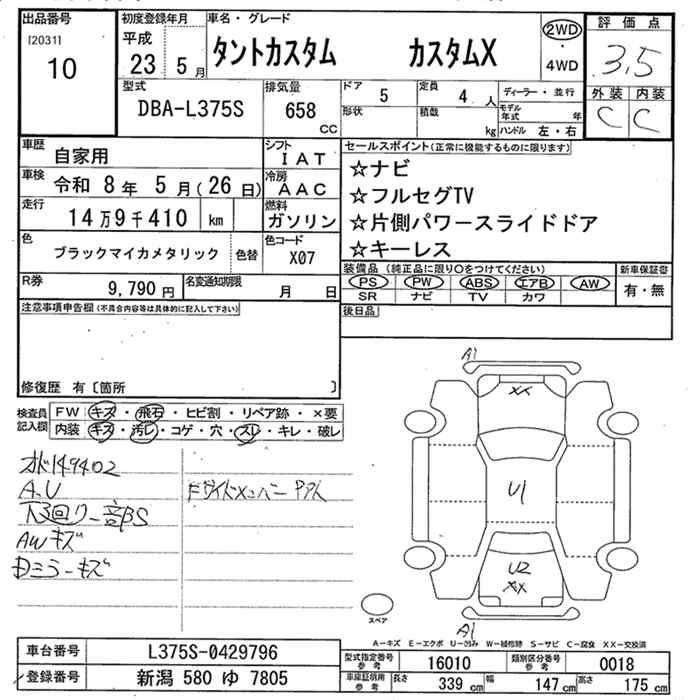 出品番号 初度登録年月 車名・グレード 2WD 評価点
[2031] 10 平成 23 5月 タントカスタム カスタムX 4WD 3.5
型式 排気量 ドア 5 定員 4人 ディーラー・並行 外装 内装
DBA-L375S 658 CC 形状 積載 kg モデル年式 年 C C
ハンドル 左・右
車歴 自家用 シフト IAT セールスポイント(正常に機能するものに限ります)
車検 令和 8年 5月(26日) 冷房 AAC ☆ナビ
☆フルセグTV
走行 14万9千410 km 燃料 ガソリン ☆片側パワースライドドア
色 ブラックマイカメタリック 色替 色コード X07 ☆キーレス
装備品 (純正品に限り○をつけてください) 新車保証書
R券 9,790円 名変通知期限 月 日 PS PW ABS エアB AW 有・無
SR ナビ TV カワ
注意事項申告欄(不具合内容等は具体的に記入して下さい) 後日品
修復歴 有〔箇所 〕
検査員記入欄 FW キズ・飛石・ヒビ割・リペア跡・×要
内装 キズ・汚レ・コゲ・穴・スレ・キレ・破レ
149402
A.U
下回り一部S
AWキズ
Dミラーキズ
A1
XX
U1
U2
XX
A1
スペア
A-キズ E-エクボ U-凹み W-補修跡 S-サビ C-腐食 XX-交換済
車台番号 L375S-0429796 型式指定番号 参考 16010 類別区分番号 参考 0018
登録番号 新潟 580 ゆ 7805 車庫証明用 参考 長さ 339 cm 幅 147 cm 高さ 175 cm